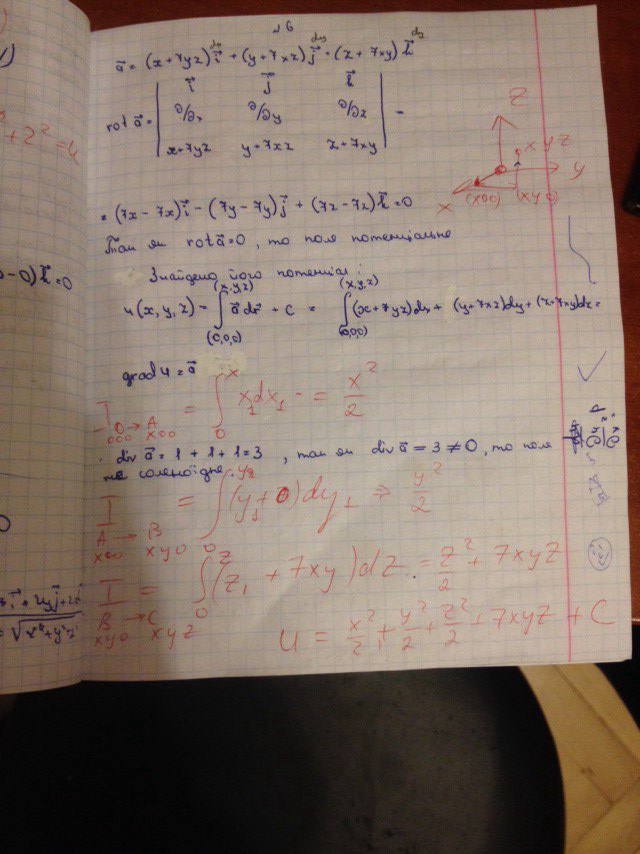 №6
a⃗ = (x+7yz)i⃗ + (y+7xz)j⃗ + (z+7xy)k⃗
rot a⃗ = | i⃗ j⃗ k⃗ |
| ∂/∂x ∂/∂y ∂/∂z | =
| x+7yz y+7xz z+7xy |
= (7x-7x)i⃗ - (7y-7y)j⃗ + (7z-7z)k⃗ = 0
Так як rot a⃗ = 0, то поле потенціальне
Знайдемо його потенціал:
u(x,y,z) = ∫_(0,0,0)^(x,y,z) a⃗ dr⃗ + C = ∫_(0,0,0)^(x,y,z) (x+7yz)dx + (y+7xz)dy + (z+7xy)dz =
grad u = a⃗
I 0→A 000 x00 = ∫_0^x x₁dx₁ = x²/2
div a⃗ = 1+1+1=3, так як div a⃗ = 3 ≠ 0, то поле
не соленоїдне.
I A→B x00 xy0 = ∫_0^y (y₁+0)dy₁ ⇒ y²/2
I B→C xy0 xyz = ∫_0^z (z₁+7xy)dz = z²/2 + 7xyz
u = x²/2 + y²/2 + z²/2 + 7xyz + C
z
xyz
y
x
(x00)
(xy0)